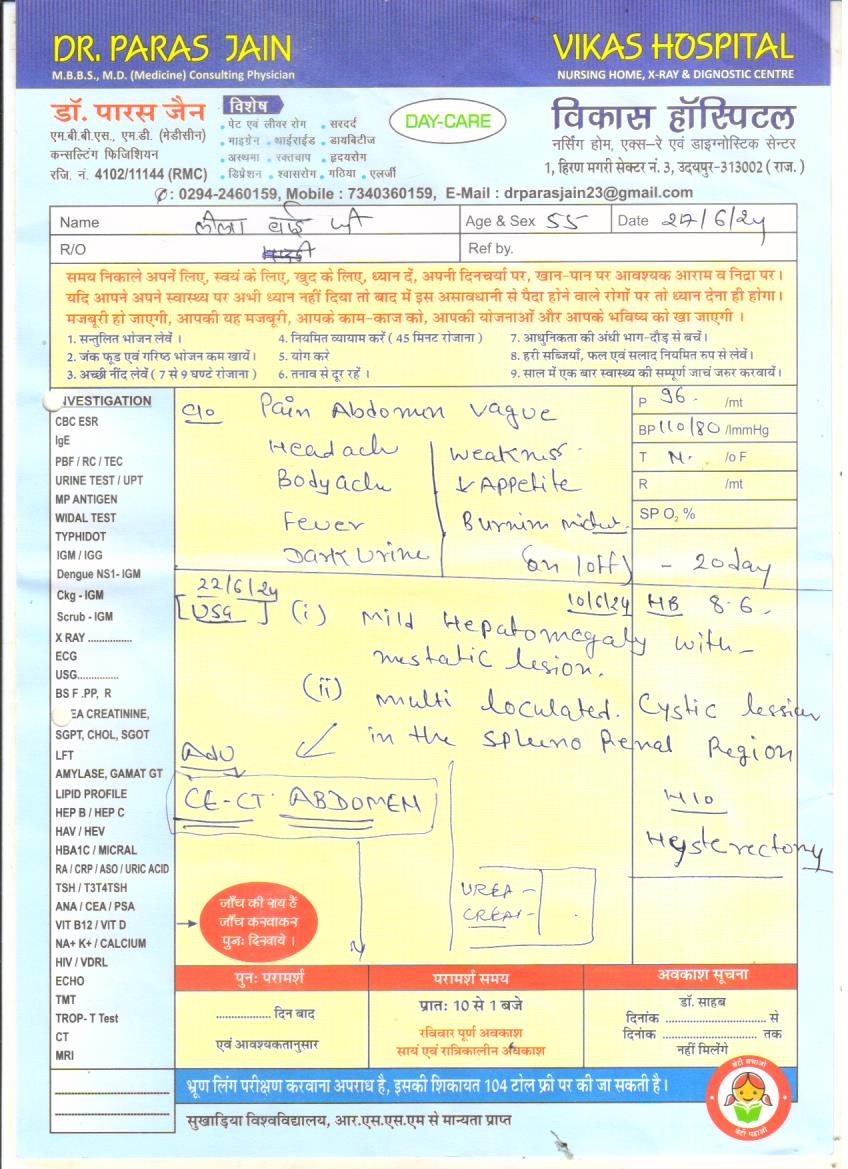 DR. PARAS JAIN
M.B.B.S., M.D. (Medicine) Consulting Physician
VIKAS HOSPITAL
NURSING HOME, X-RAY & DIGNOSTIC CENTRE
डॉ. पारस जैन
एम.बी.बी.एस., एम.डी. (मेडीसीन)
कन्सल्टिंग फिजिशियन
रजि. नं. 4102/11144 (RMC)
विशेष
• पेट एवं लीवर रोग • सरदर्द
• माइग्रेन • थाईराईड • डायबिटीज
• अस्थमा • रक्तचाप • हृदयरोग
• डिप्रेशन • श्वासरोग • गठिया • एलर्जी
DAY-CARE
विकास हॉस्पिटल
नर्सिंग होम, एक्स-रे एवं डाइग्नोस्टिक सेन्टर
1, हिरण मगरी सेक्टर नं. 3, उदयपुर-313002 ( राज. )
✆: 0294-2460159, Mobile : 7340360159, E-Mail : drparasjain23@gmail.com
Name लीला बाई Age & Sex 55 Date 27/6/24
R/O Ref by.
समय निकाले अपनें लिए, स्वयं के लिए, खुद के लिए, ध्यान दें, अपनी दिनचर्या पर, खान-पान पर आवश्यक आराम व निद्रा पर।
यदि आपने अपने स्वास्थ्य पर अभी ध्यान नहीं दिया तो बाद में इस असावधानी से पैदा होने वाले रोगों पर तो ध्यान देना ही होगा।
मजबूरी हो जाएगी, आपकी यह मजबूरी, आपके काम-काज को, आपकी योजनाओं और आपके भविष्य को खा जाएगी ।
1. सन्तुलित भोजन लेवें । 4. नियमित व्यायाम करें ( 45 मिनट रोजाना ) 7. आधुनिकता की अंधी भाग-दौड़ से बचें।
2. जंक फूड एवं गरिष्ठ भोजन कम खायें। 5. योग करे 8. हरी सब्जियाँ, फल एवं सलाद नियमित रुप से लेवें।
3. अच्छी नींद लेवें ( 7 से 9 घण्टे रोजाना ) 6. तनाव से दूर रहें । 9. साल में एक बार स्वास्थ्य की सम्पूर्ण जाचं जरुर करवायें।
NVESTIGATION
CBC ESR
IgE
PBF / RC / TEC
URINE TEST / UPT
MP ANTIGEN
WIDAL TEST
TYPHIDOT
IGM / IGG
Dengue NS1- IGM
Ckg - IGM
Scrub - IGM
X RAY ................
ECG
USG...............
BS F .PP, R
EA CREATININE,
SGPT, CHOL, SGOT
LFT
AMYLASE, GAMAT GT
LIPID PROFILE
HEP B / HEP C
HAV / HEV
HBA1C / MICRAL
RA / CRP / ASO / URIC ACID
TSH / T3T4TSH
ANA / CEA / PSA
VIT B12 / VIT D
NA+ K+ / CALCIUM
HIV / VDRL
ECHO
TMT
TROP- T Test
CT
MRI
C/o Pain Abdomen vague
Headach Weakness
Bodyache ↓ Appetite
Fever Burnim mict.
Dark urine (on / off) - 20 day
P 96 /mt
BP 110/80 /ImmHg
T N. /o F
R /mt
SP O₂ %
22/6/24 10/6/24 HB 8.6
[USG] (i) Mild Hepatomegaly with
mestatic lesion.
(ii) multi loculated. Cystic lession
in the Spleeno Renal Region
Adv
CE-CT ABDOMEN
H/o
Hysterectomy
UREA -
CREAT -
जाँच की राय हैं
जाँच करवाकर
पुनः दिखाये ।
पुनः परामर्श
.................. दिन बाद
एवं आवश्यकतानुसार
परामर्श समय
प्रातः 10 से 1 बजे
रविवार पूर्ण अवकाश
सायं एवं रात्रिकालीन अवकाश
अवकाश सूचना
डॉ. साहब
दिनांक ........................... से
दिनांक ......................... तक
नहीं मिलेंगे
भ्रूण लिंग परीक्षण करवाना अपराध है, इसकी शिकायत 104 टोल फ्री पर की जा सकती है।
सुखाड़िया विश्वविद्यालय, आर.एस.एस.एम से मान्यता प्राप्त
बेटी बचाओ
बेटी पढ़ाओ